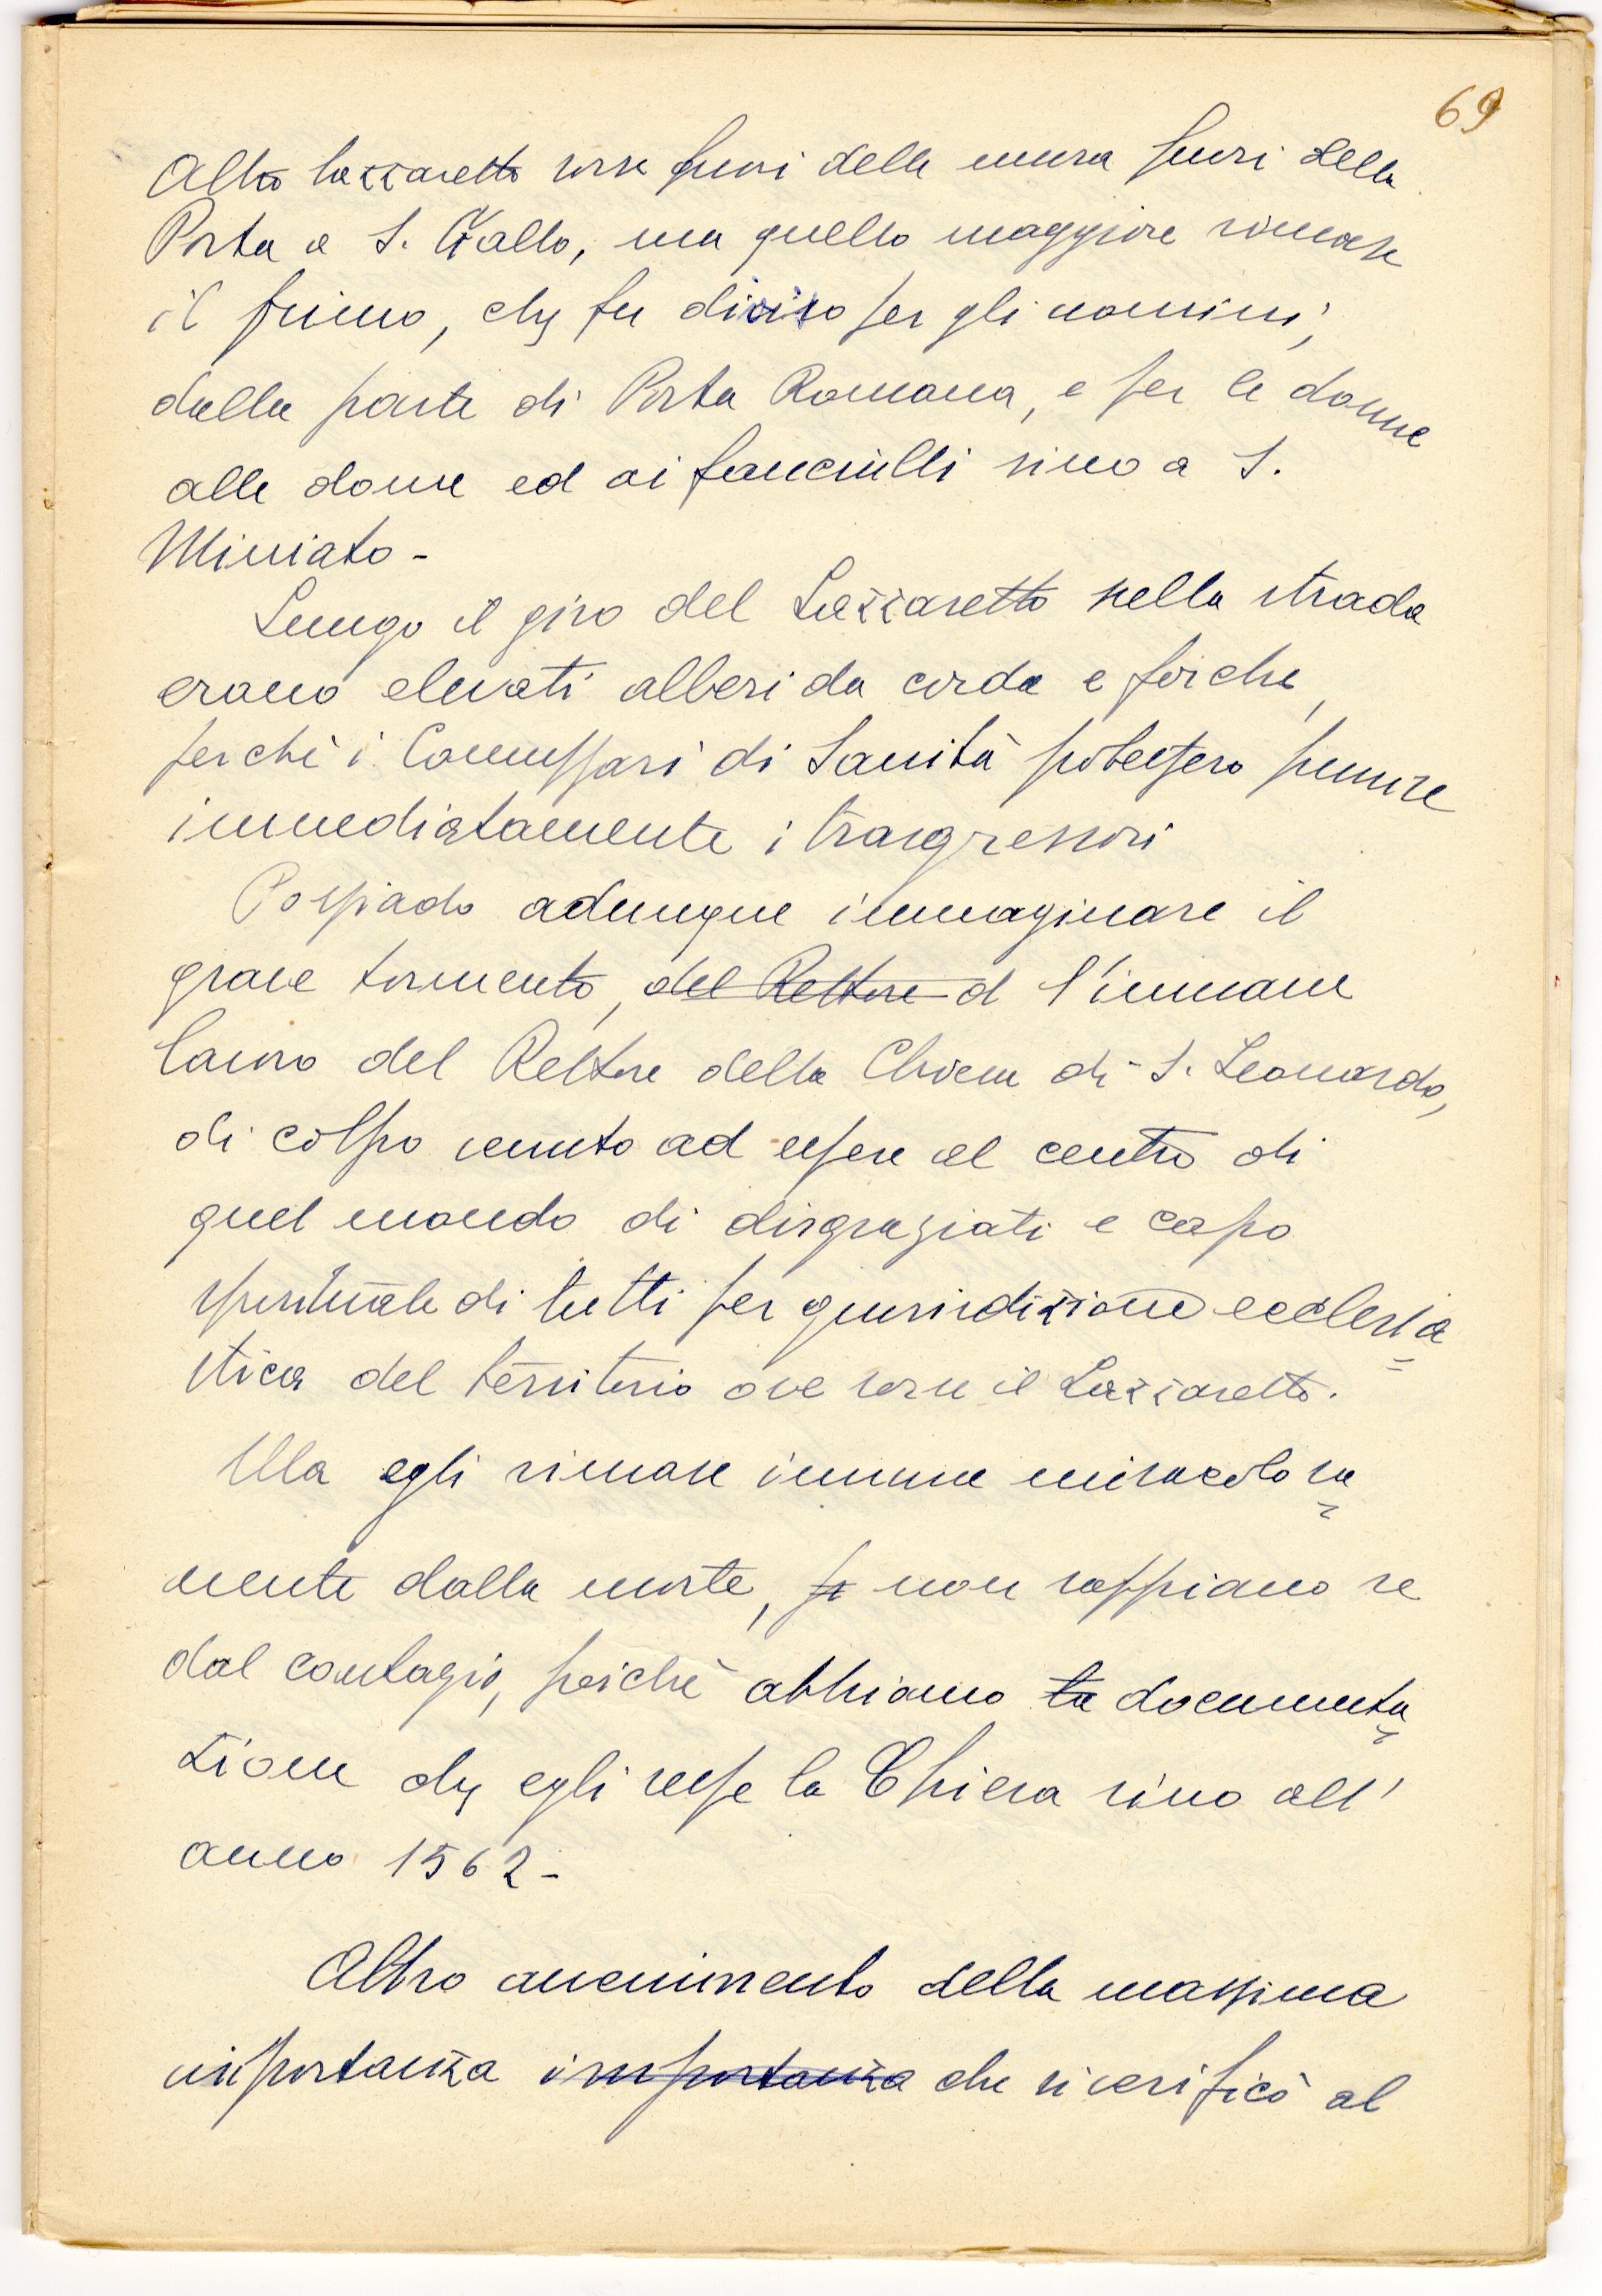 69
Altro lazzaretto sorse fuori delle mura fuori della
Porta a S. Gallo, ma quello maggiore rimase
il primo, che fu diviso per gli uomini,
dalla parte di Porta Romana, e per le donne
alle donne ed ai fanciulli sino a S.
Miniato -
Lungo il giro del Lazzaretto nella strada
erano elevati alberi da corda e forche,
perchè i Commissari di Sanità potessero punire
immediatamente i trasgressori
Possiado adunque immaginare il
grave tormento, del Rettore d l'immane
lavoro del Rettore della Chiesa di S. Leonardo,
di colpo venuto ad essere al centro di
quel mondo di disgraziati e capo
spirituale di tutti per giurisdizione ecclesia=
stica del territorio ove sorse il Lazzaretto.
Ma egli rimase immune miracolosa=
mente dalla morte, non sappiamo se
dal contagio, poichè abbiamo la documenta=
zione che egli resse la Chiesa sino all'
anno 1562 -
Altro avvenimento della massima
importanza importanza che si verificò al